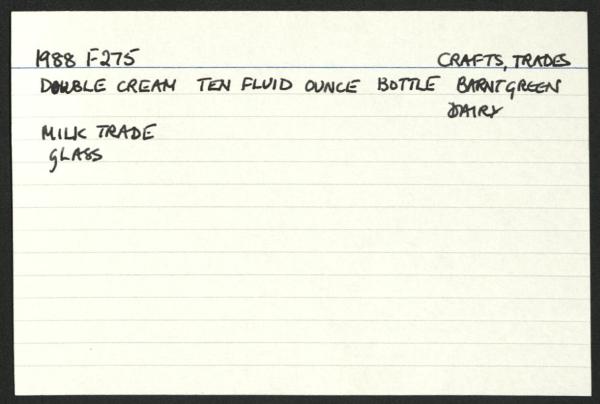 1988 F275 CRAFTS, TRADES
DOUBLE CREAM TEN FLUID OUNCE BOTTLE BARNT GREEN
DAIRY
MILK TRADE
GLASS